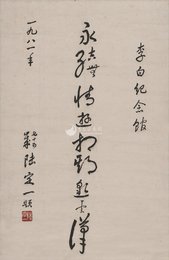 李白纪念馆
永结无情游相期邈云汉
一九八一年
陆定一题